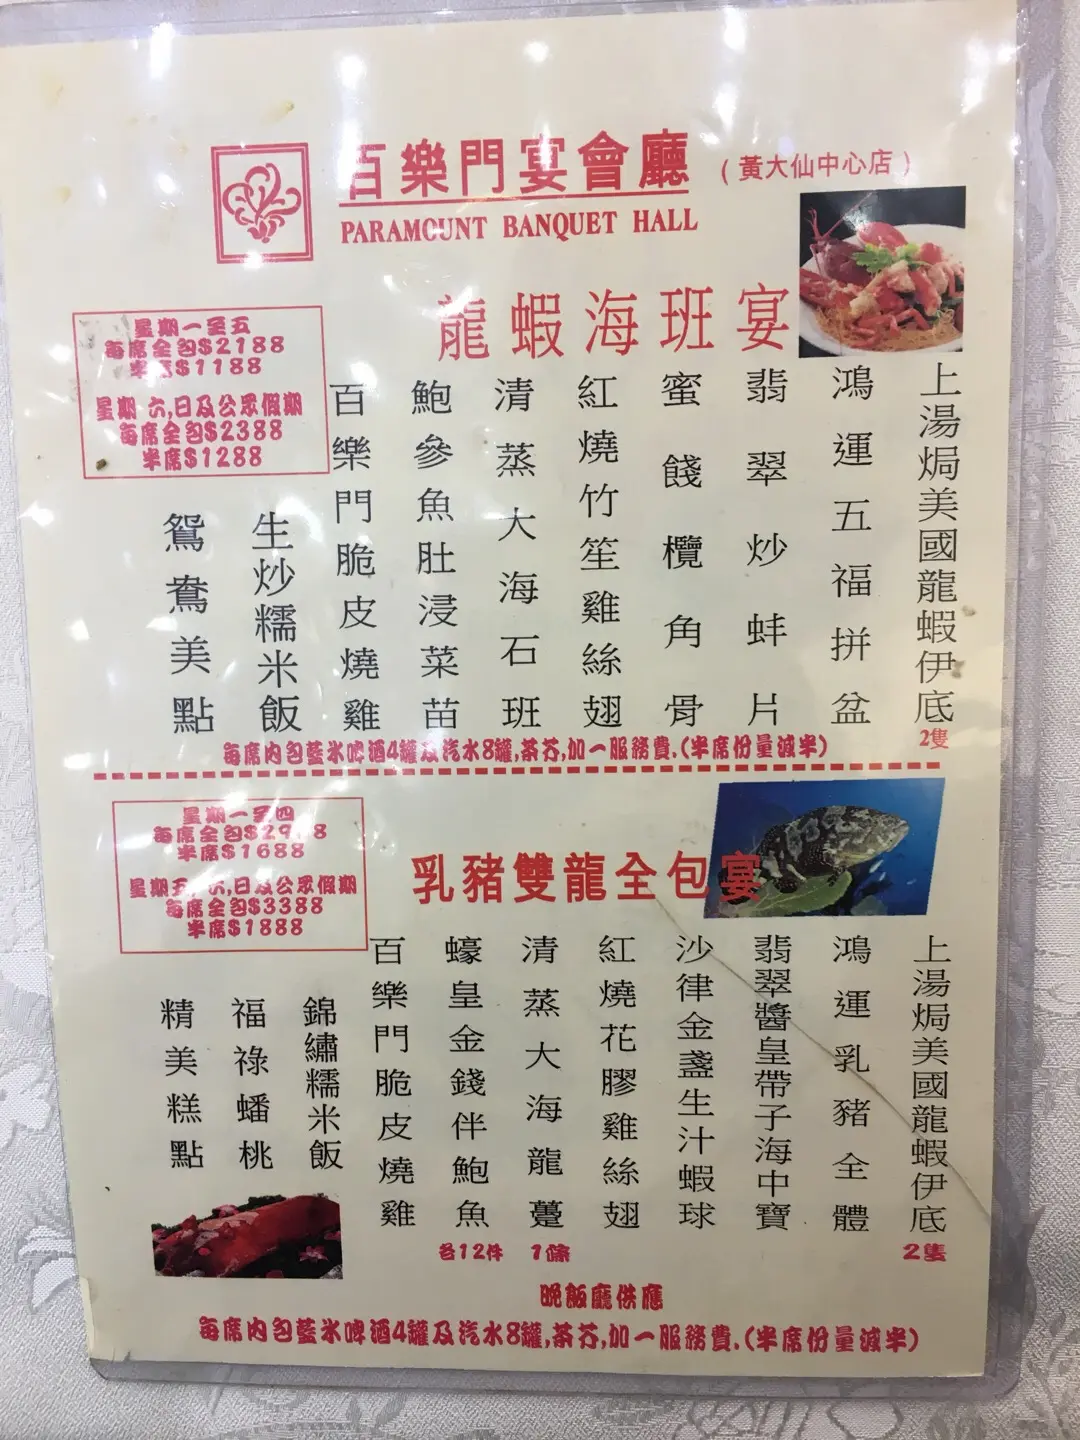 百樂門宴會廳
(黃大仙中心店)
PARAMOUNT BANQUET HALL
龍蝦海班宴
星期一至五
每席全包$2188
半席$1188
星期六,日及公眾假期
每席全包$2388
半席$1288
上湯焗美國龍蝦伊底
2隻
鴻運五福拼盆
翡翠炒蚌片
蜜餞欖角骨
紅燒竹笙雞絲翅
清蒸大海石班
鮑參魚肚浸菜苗
百樂門脆皮燒雞
生炒糯米飯
鴛鴦美點
每席內包藍氷啤酒4罐及汽水8罐,茶芥,加一服務費.(半席份量減半)
乳豬雙龍全包宴
星期一至四
每席全包
半席$1688
星期五,六,日及公眾假期
每席全包$3388
半席$1888
上湯焗美國龍蝦伊底
2隻
鴻運乳豬全體
翡翠醬皇帶子海中寶
沙律金盞生汁蝦球
紅燒花膠雞絲翅
清蒸大海龍躉
1條
蠔皇金錢伴鮑魚
各12件
百樂門脆皮燒雞
錦繡糯米飯
福祿蟠桃
精美糕點
晚飯廳供應
每席內包藍氷啤酒4罐及汽水8罐,茶芥,加一服務費.(半席份量減半)